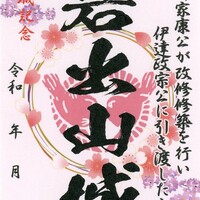 家康公が改修修築を行い
伊達政宗公に引き渡した
岩出山城
念
令和　年　月